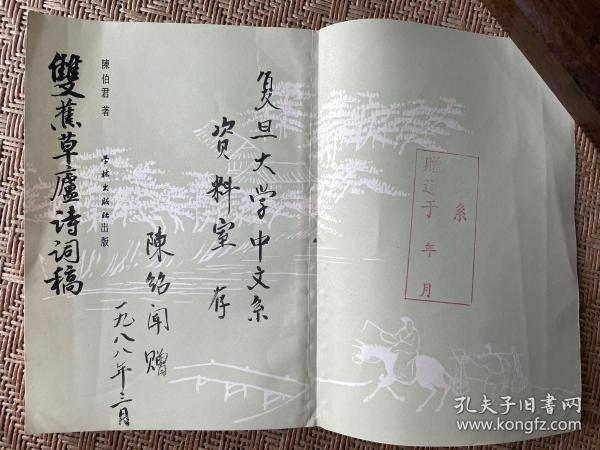 雙蕉草廬诗词稿
陳伯君 著
学林出版社出版
复旦大学中文系
资料室 存
陈铭闻赠
一九八八年三月
系
赠送于 年 月
孔夫子旧书网
www.kongfz.com